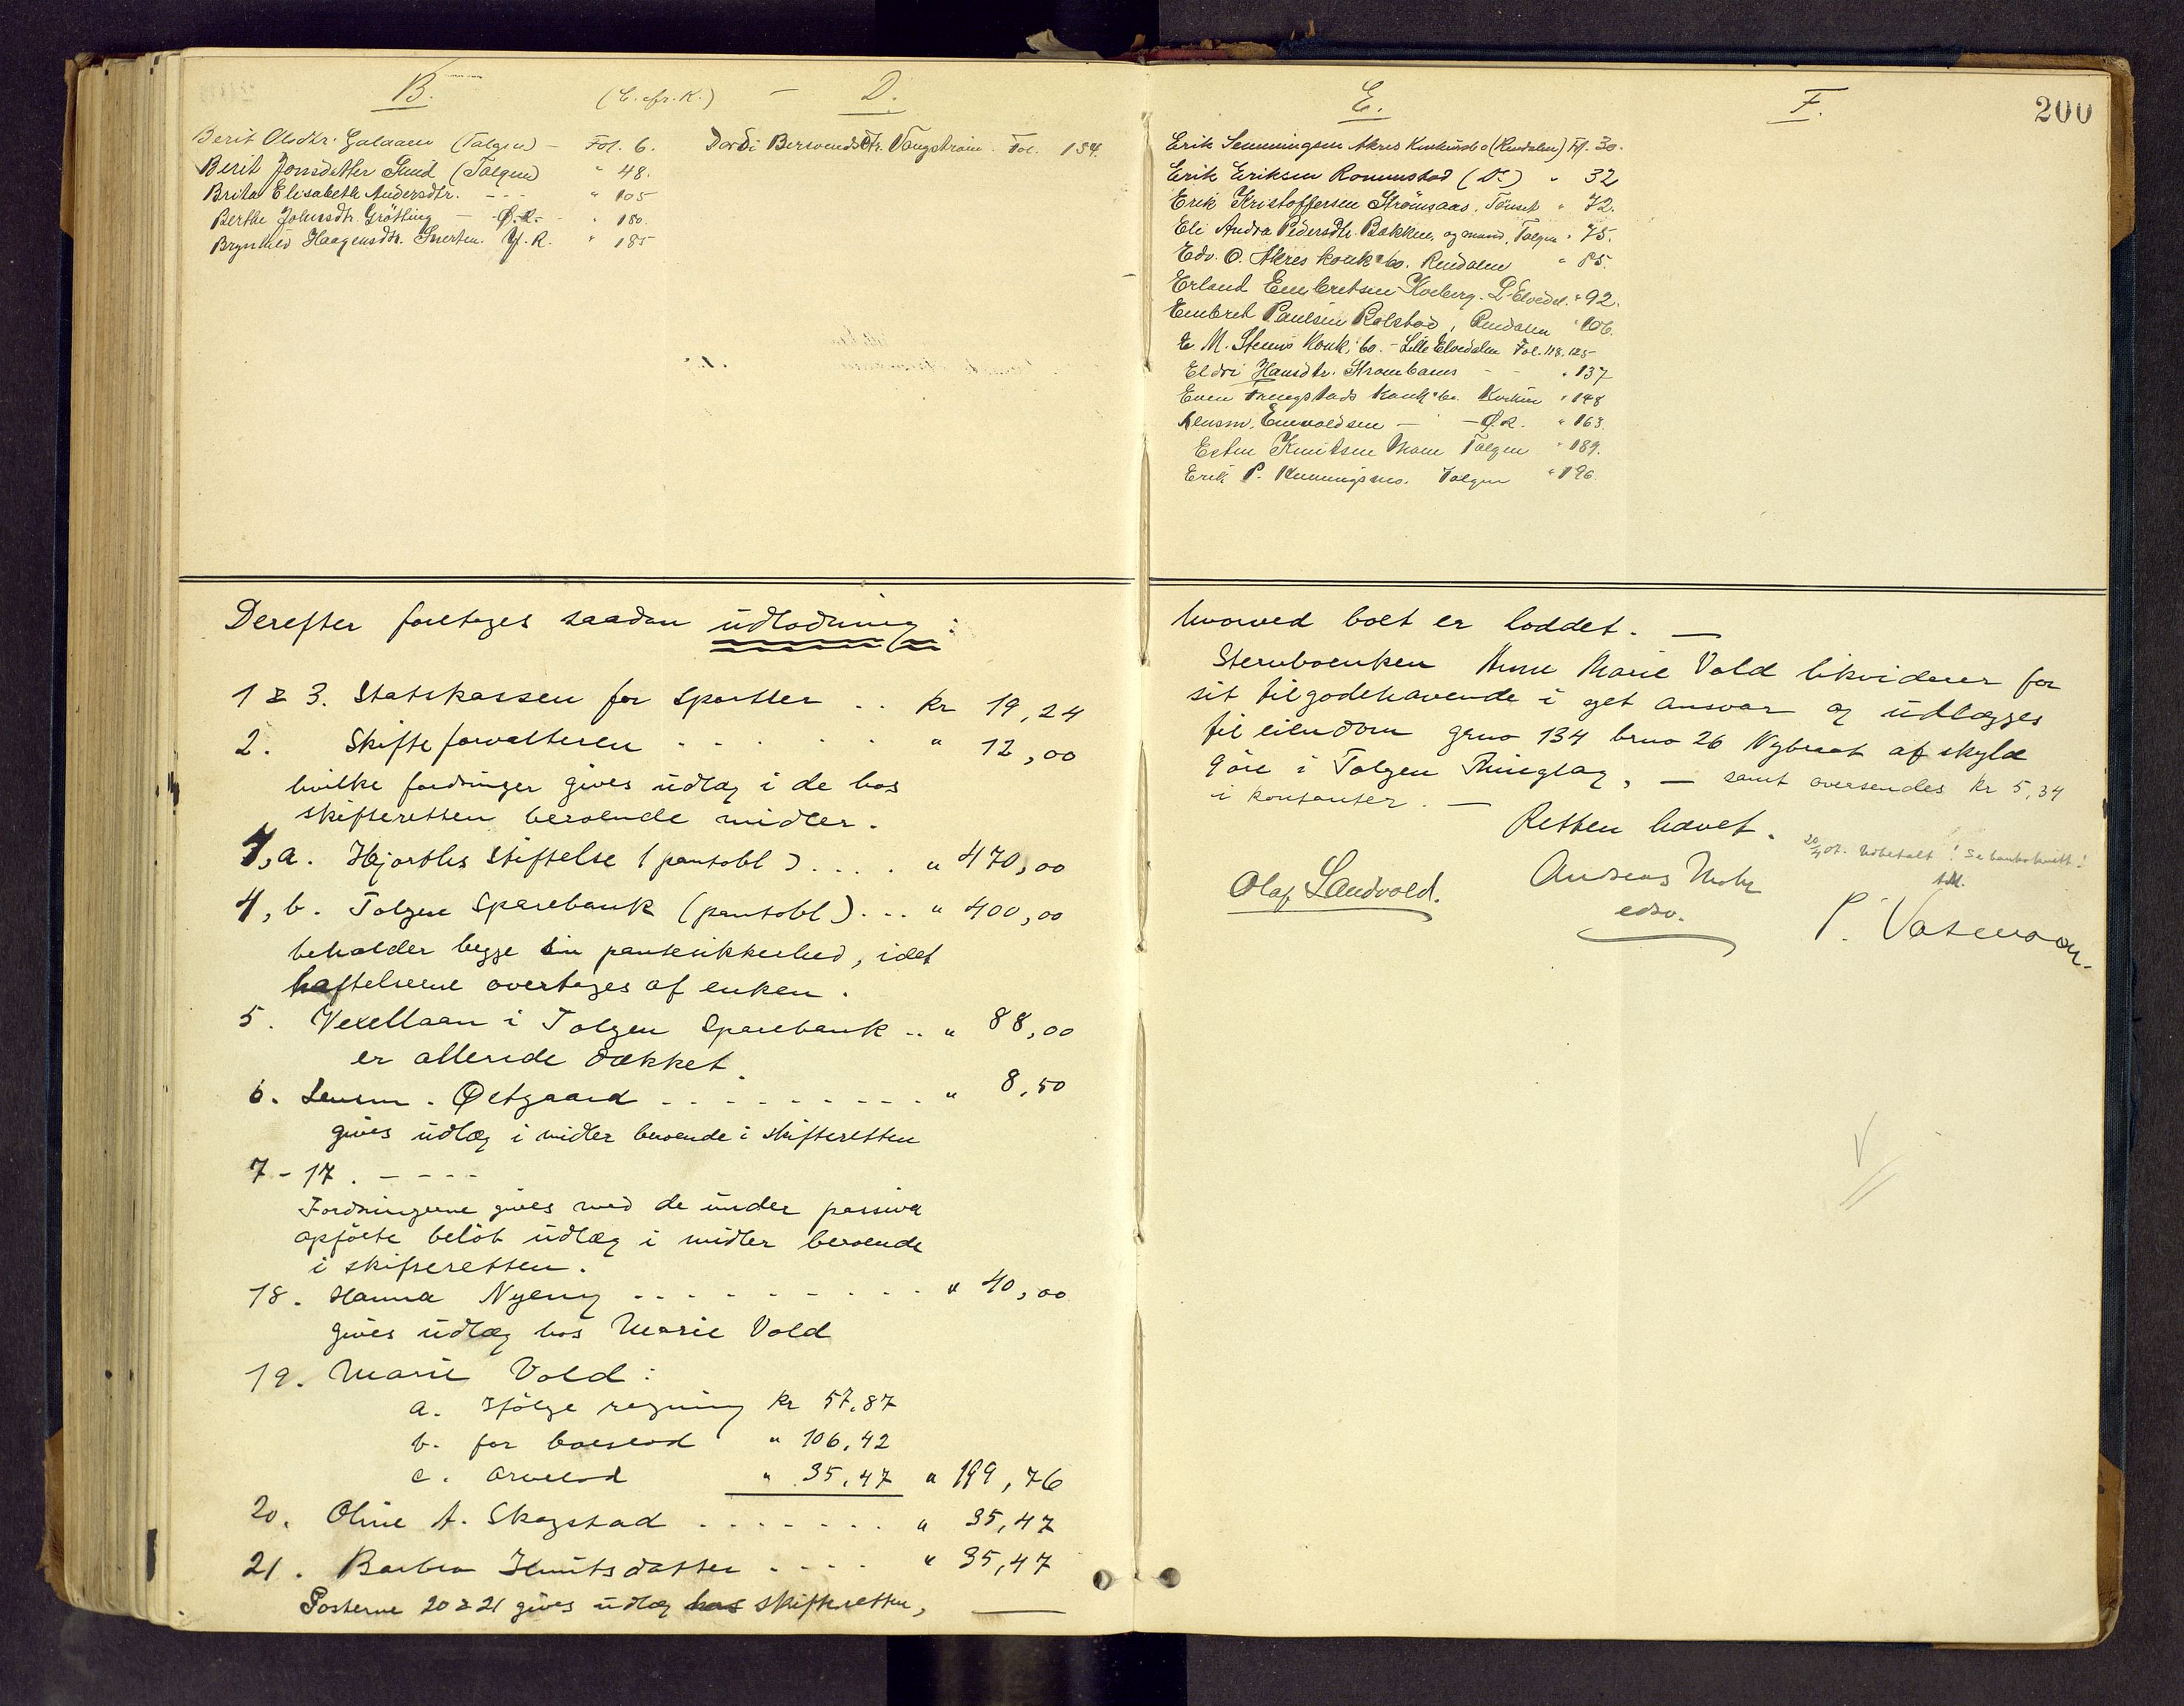 B. (C. cfr. K.) - D.
Berit Olsdtr. Galaaen (Tolgen) - Fol. 6.
Berit Jonsdatter Sund (Tolgen) " 48.
Brita Elisabeth Andersdtr. - - - " 105
Berthe Johnsdtr. Grøtting - Ø.R. - " 180.
Brynhild Haagensdtr. Y.R. " 185
Dordi Bersvendsdtr. Vangstrøen. Fol. 134.
E. F. 200
Erik Akres Konkursbo (Rendalen) Fol. 30.
Erik Eriksen Romunstad (Do) " 32
Erik Kristoffersen Strømsaas, Tønset " 72.
Eli Andra Pedersdtr. Bakken, og mand, Tolgen " 75.
Edv. O. Akres konk.bo. Rendalen " 85.
Erland Embretsen Koberg. L. Elvedal. " 92.
Embret Paulsen Rolstad, Rendalen " 106.
E. M. Steens Konk.bo. - Lille Elvedalen Fol. 118. 125-
Eldri Hansdtr. - - " 137
Even konk.bo. " 148
Lensm. Enevoldsen - - Ø.R. " 163.
Esten Knutsen Moen Tolgen " 189.
Erik P. Kenningsmo. Tolgen " 196.
Derefter foretoges saadan udlodning:
1 & 3. Statskassen for sportler .. kr 19,24
2. Skifteforvalteren - - - - - " 12,00
hvilke fordringer gives udlæg i de hos
skifteretten beroende midler.
4, a. Hjorths Stiftelse (pantobl) .... " 470,00
4, b. Tolgen Sparebank (pantobl) ... " 400,00
beholder begge sin pantesikkerhed, idet
hæftelserne overtages af enken.
5. Vexellaan i Tolgen Sparebank .. " 88,00
er allerede dækket.
6. Lensm. Østgaard - - - - - - - - - " 8,50
gives udlæg i midler beroende i skifteretten
7-17. - - - -
Fordringerne gives med de under passiva
opførte beløb udlæg i midler beroende
i skifteretten.
18. Hanna Nyeng - - - - - - - - - " 40,00
gives udlæg hos Marie Vold
19. Marie Vold:
a. Ifølge regning kr 57,87
b. for boeslod " 106,42
c. arvelod " 35,47 " 199,76
20. Oline A. Skogstad . - - - - - . " 35,47
21. Barbro Knutsdatter . - - - . " 35,47
Posterne 20 & 21 gives udlæg hos skifteretten,
hvorved boet er loddet. -
Stervboenken Anne Marie Vold likviderer for
sit tilgodehavende i eget ansvar og udlægges
til eiendom gno 134 bno 26 af skyld
9 øre i Tolgen Thinglag, - samt oversendes kr 5,34
i kontanter. -
Retten hævet.
20/4 07. Udbetalt! Se bankokvitt!
Olaf Sandvold. Andreas Mohr
edsv. P.